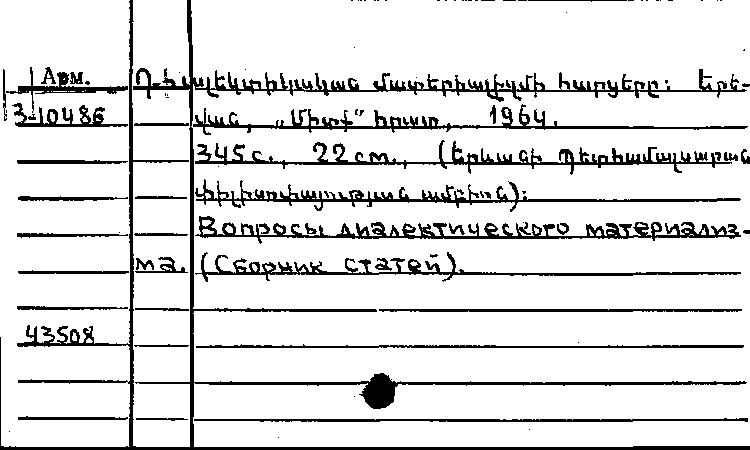 Арм. Դիալեկտիկական մատերիալիզմի հարցերը: Երե-
3-10486 վան, „Միտք" հրատ., 1964.
345 с., 22 см., (Երևանի Պետհամալսարան
փիլիսոփայության ամբիոն):
Вопросы диалектического материализ-
ма. (Сборник статей).
43508